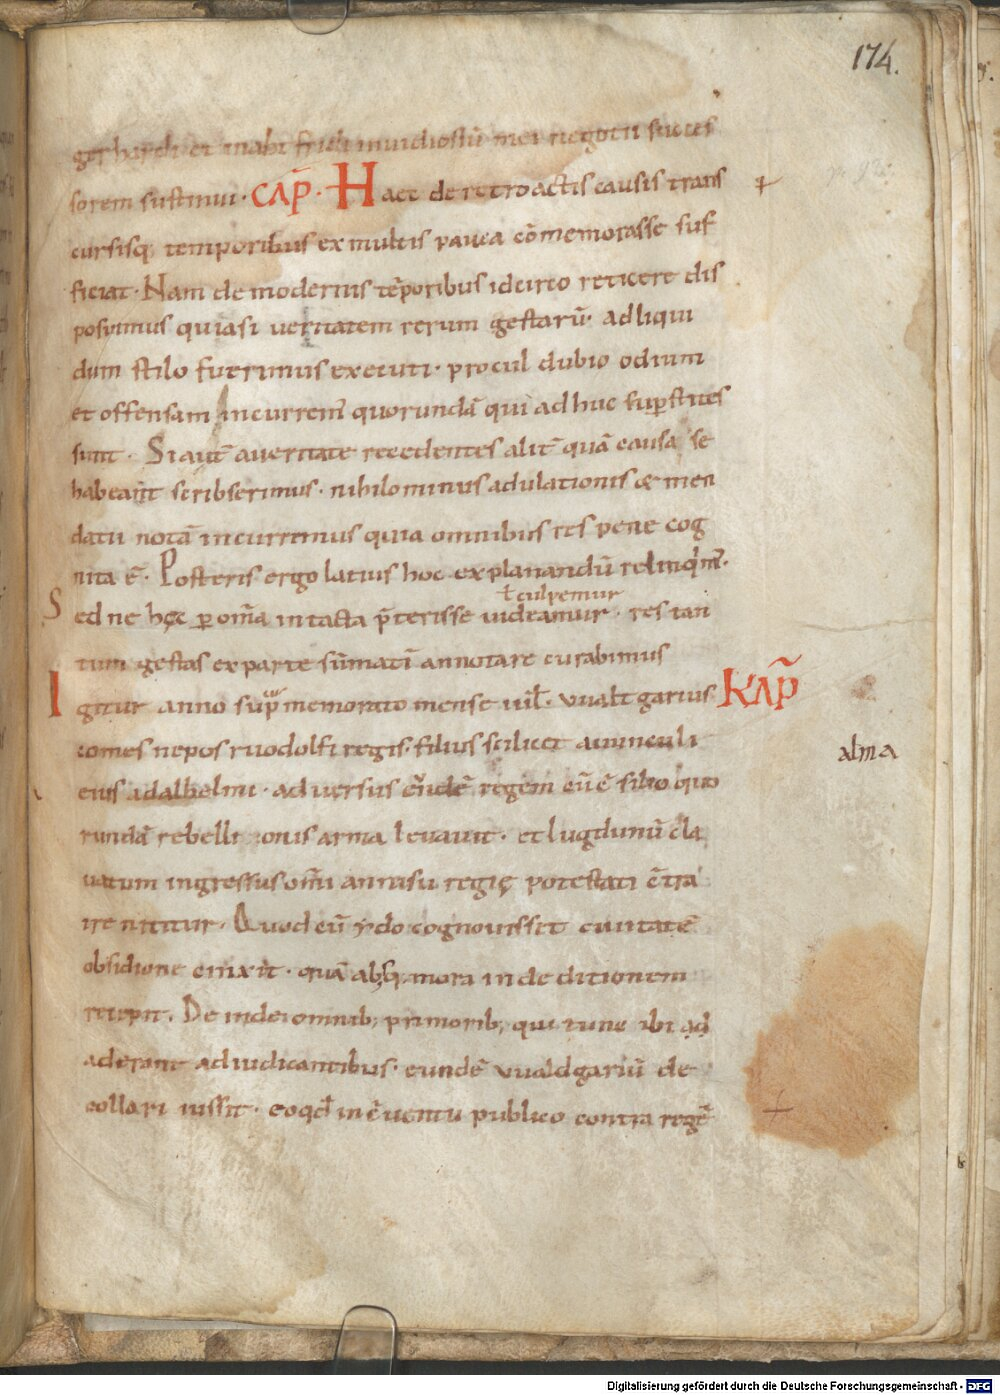 174.
gerhardi et mahtfridi inuidiosũ mei negotii succes
sorem sustinui · CAP̃ · Haec de retroactis causis trans
cursisq; temporibus ex multis pauca cõmemorasse suf
ficiat · Nam de modernis tẽporibus idcirco reticere dis
posuimus quia si ueritatem rerum gestarũ ad liqui
dum stilo fuerimus executi · procul dubio odium
et offensam incurrem̃ quorundã qui ad huc sup̱stites
sunt · Si aut̃ a ueritate recedentes alit̃ quã causa se
habeant scribserimus · nihilominus adulationis & men
datii notã incurremus quia omnibus res pene cog
nita ẽ · Posteris ergo latius hoc explanandũ relinq̃m̃ ·
ł culpemur
Sed ne hęc ꝑ om̃a intacta p̃terisse uideamur · res tan
tum gestas ex parte sũmatĩ annotare curabimus
Igitur anno sup̃memorato mense iul̃ · vualtgarius KAP̃
comes nepos ruodolfi regis · filius scilicet auunculi
alma
eius adalhelmi · aduersus eũdẽ regem cũ c̃silio quo
rundã rebellionis arma leuauit · et lugdunũ cla
uatum ingressus om̃i annisu regię potestati c̃tra
ire nititur · Quod cũ odo cognouisset ciuitatẽ
obsidione cinxit · quã absq; mora in deditionem
recepit. Deinde omnib; primorib; qui tunc ibi ad
aderant adiudicantibus · eundẽ vualdgariũ de
collari iussit · eo qđ in c̃uentu publico contra regẽ
Digitalisierung gefördert durch die Deutsche Forschungsgemeinschaft - DFG